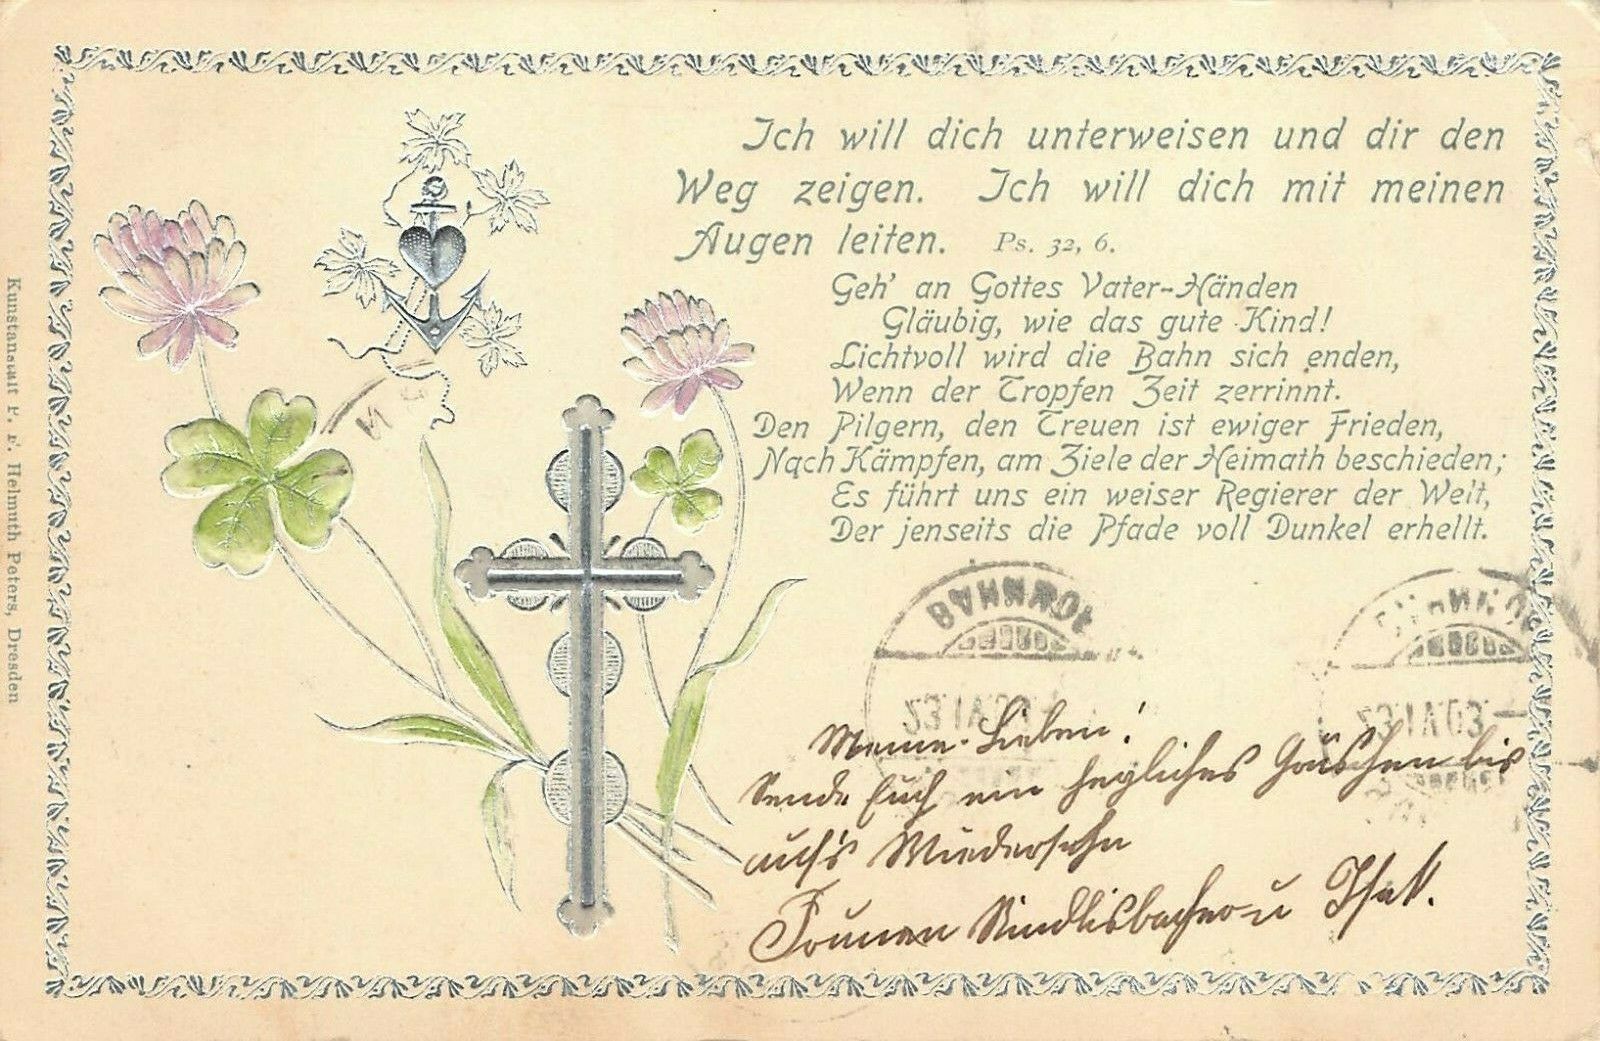 Ich will dich unterweisen und dir den
Weg zeigen. Ich will dich mit meinen
Augen leiten. Ps. 32, 6.
Geh' an Gottes Vater-Händen
Gläubig, wie das gute Kind!
Lichtvoll wird die Bahn sich enden,
Wenn der Tropfen Zeit zerrinnt.
Den Pilgern, den Treuen ist ewiger Frieden,
Nach Kämpfen, am Ziele der Heimath beschieden;
Es führt uns ein weiser Regierer der Welt,
Der jenseits die Pfade voll Dunkel erhellt.
BAHNHOF
23.IV.03.
23.IV.03.
Meine Lieben!
Sende Euch ein herzliches Grüsschen bis
auf's Wiedersehn
Rindlisbacher u
Kunstanstalt P. F. Helmuth Peters, Dresden